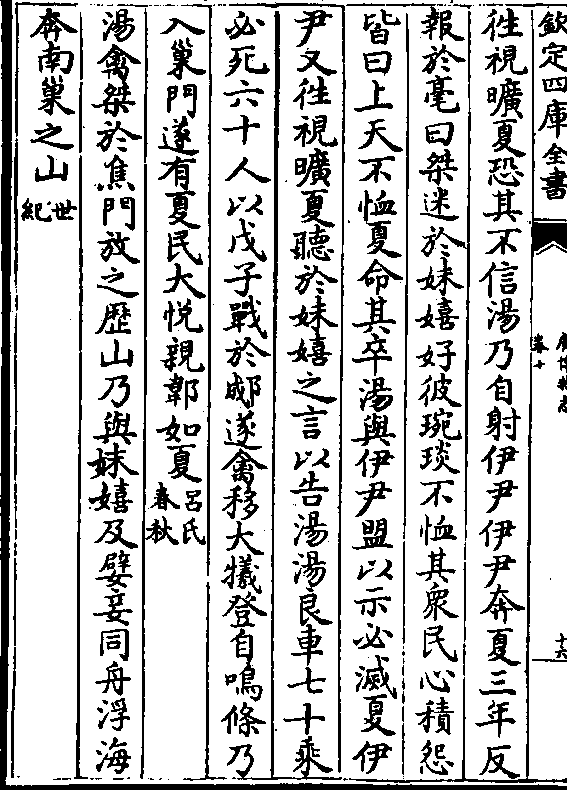 欽定四庫全書
廣博物志
卷十
十六
徃視曠夏恐其不信湯乃自射伊尹伊尹奔夏三年反
報於亳曰桀迷於妺嬉好彼琬琰不恤其衆民心積怨
皆曰上天不恤夏命其卒湯與伊尹盟以示必滅夏伊
尹又徃視曠夏聽於妺嬉之言以告湯湯良車七十乘
必死六十人以戊子戰於郕遂禽移大犧登自鳴條乃
入巢門遂有夏民大悅親郼如夏呂氏春秋
湯禽桀於焦門放之歴山乃與妺嬉及嬖妾同舟浮海
奔南巢之山世紀